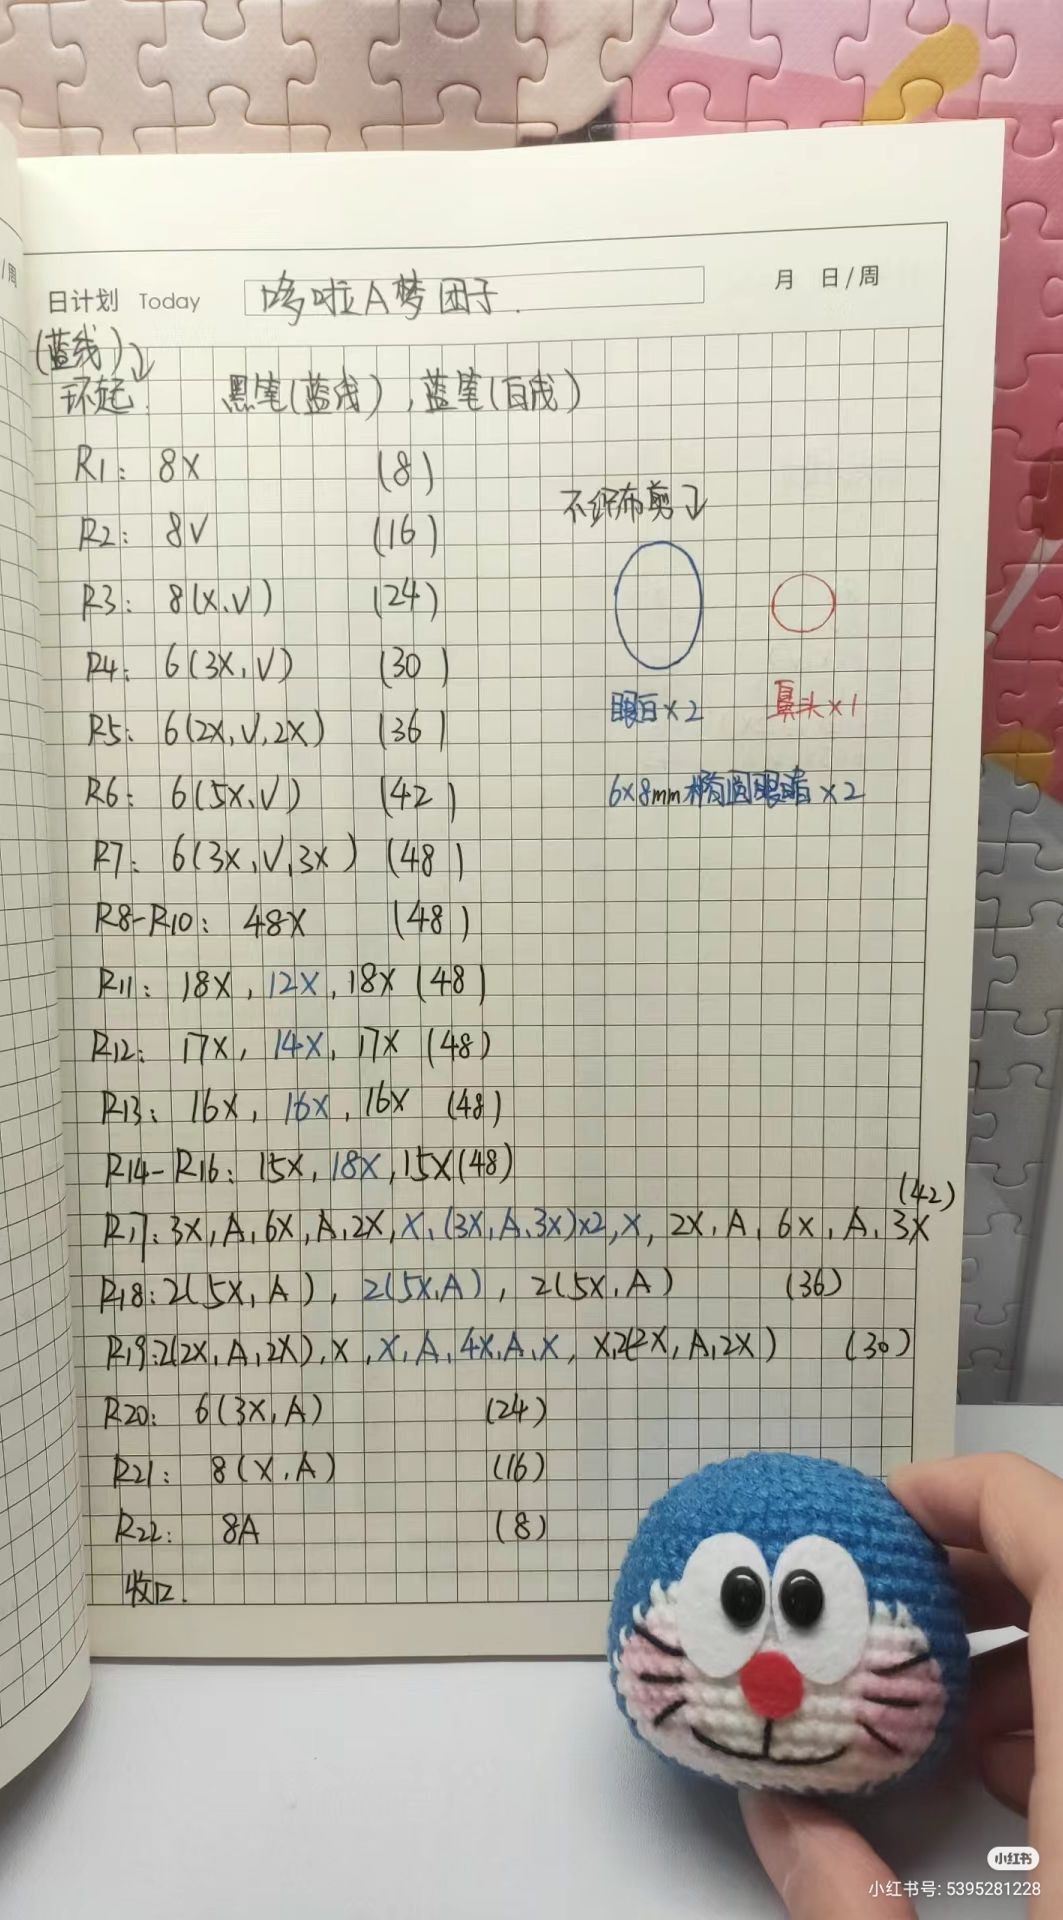 /周
日计划 Today 哆啦A梦团子. 月 日/周
(蓝线)↓
环起. 黑笔(蓝线),蓝笔(白线)
R1: 8X (8)
R2: 8V (16)
R3: 8(X,V) (24)
R4: 6(3X,V) (30)
R5: 6(2X,V,2X) (36)
R6: 6(5X,V) (42)
R7: 6(3X,V,3X) (48)
R8-R10: 48X (48)
R11: 18X,12X,18X (48)
R12: 17X,14X,17X (48)
R13: 16X,16X,16X (48)
R14-R16: 15X,18X,15X(48)
R17: 3X,A,6X,A,2X,X,(3X,A,3X)x2,X,2X,A,6X,A,3X (42)
R18: 2(5X,A),2(5X,A),2(5X,A) (36)
R19: 2(2X,A,2X),X,X,A,4X,A,X,X,2(2X,A,2X) (30)
R20: 6(3X,A) (24)
R21: 8(X,A) (16)
R22: 8A (8)
收口.
不织布剪↓
眼白×2 鼻头×1
6×8mm椭圆眼睛×2
小红书
小红书号: 5395281228